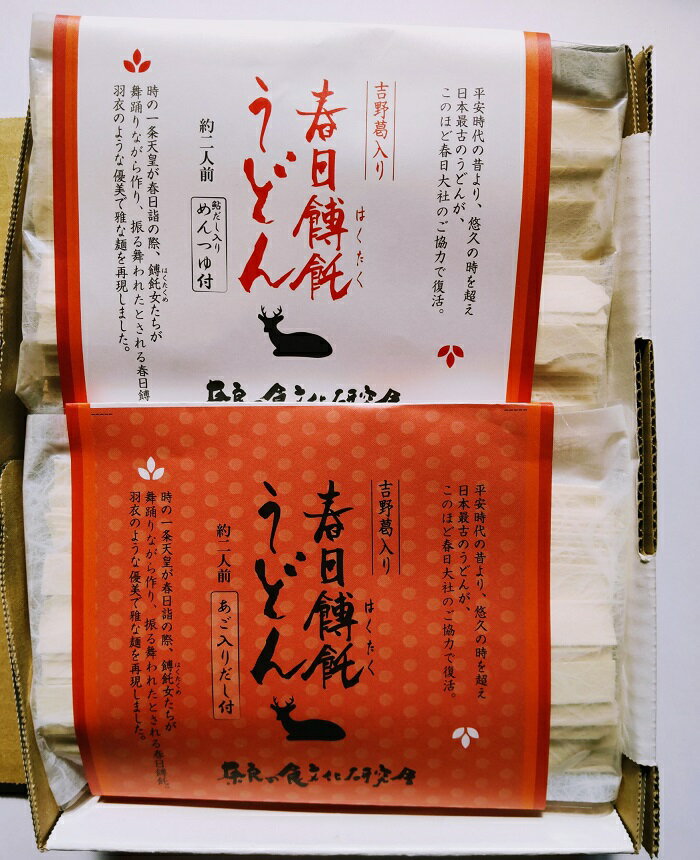 平安時代の昔より、悠久の時を超え
日本最古のうどんが、
このほど春日大社のご協力で復活。
吉野葛入り
春日餺飥
はくたく
うどん
約二人前
鮎だし入り
めんつゆ付
時の一条天皇が春日詣の際、餺飥女たちが
はくたくめ
舞踊りながら作り、振る舞われたとされる春日餺
羽衣のような優美で雅な麺を再現しました。
奈良の食文化研究会
平安時代の昔より、悠久の時を超え
日本最古のうどんが、
このほど春日大社のご協力で復活。
吉野葛入り
春日餺飥
はくたく
うどん
約二人前
あご入りだし付
時の一条天皇が春日詣の際、餺飥女たちが
はくたくめ
舞踊りながら作り、振る舞われたとされる春日餺飥。
羽衣のような優美で雅な麺を再現しました。
奈良の食文化研究会